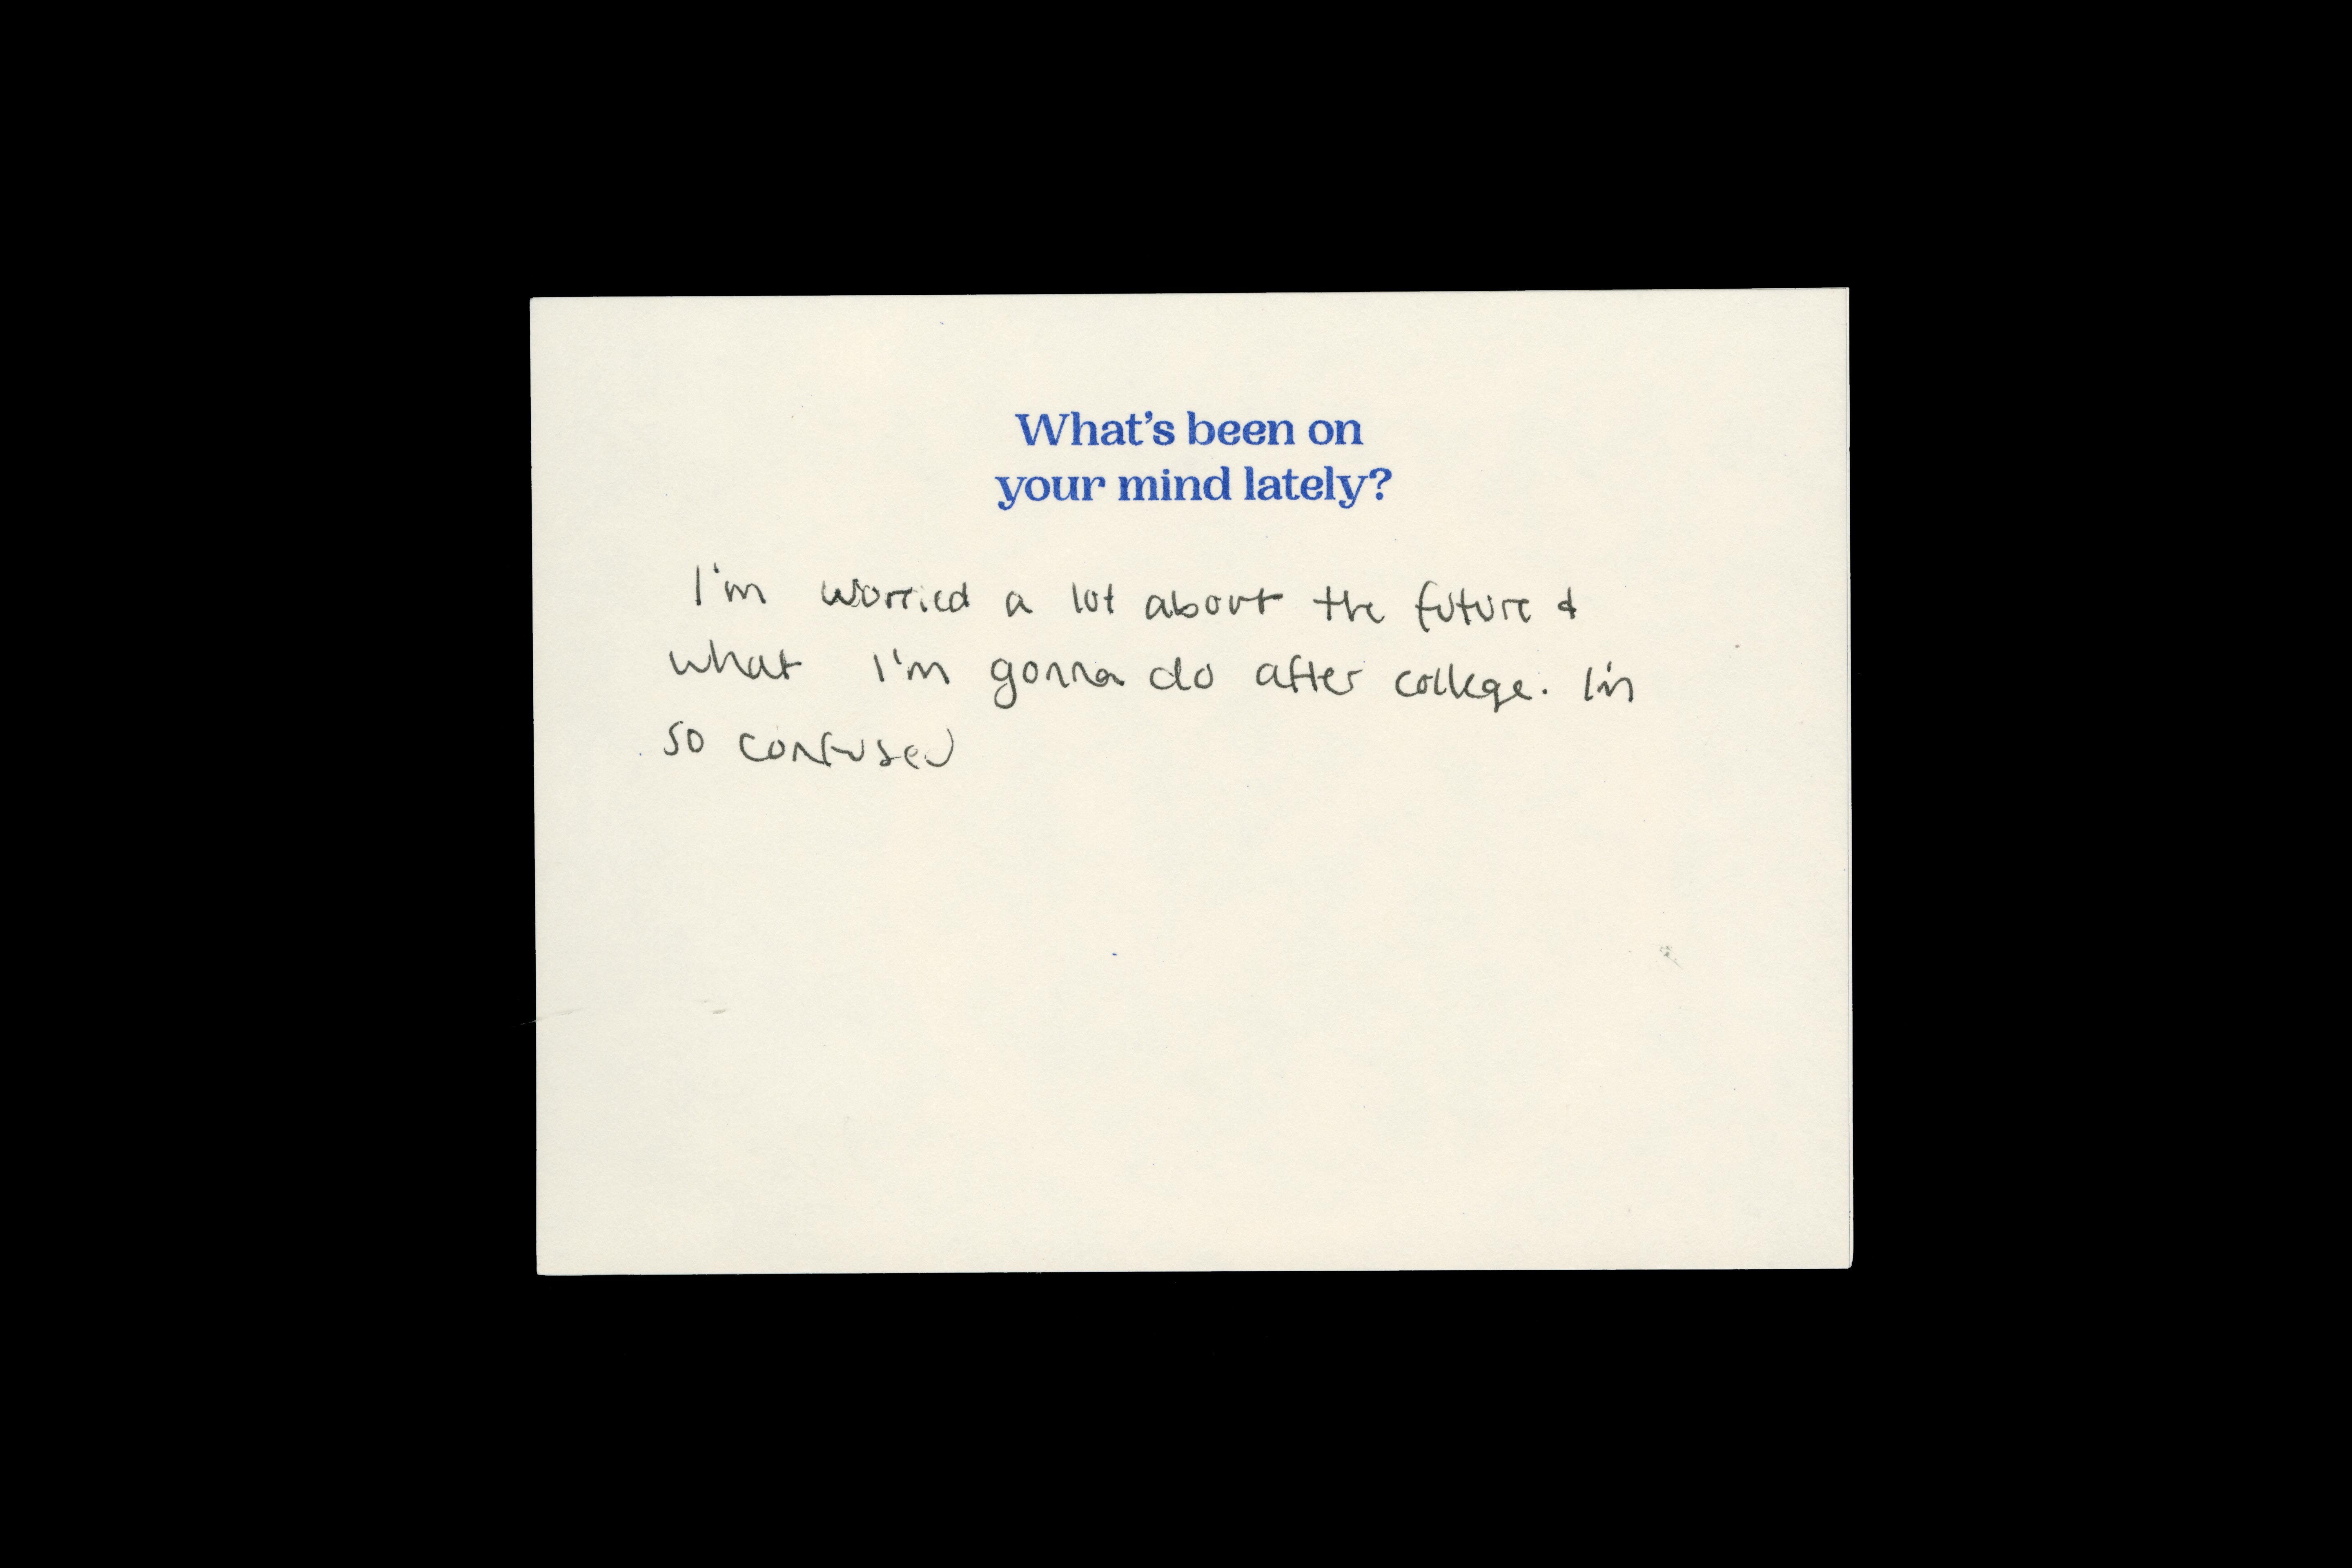 What's been on
your mind lately?
I'm worried a lot about the future &
what I'm gonna do after college. I'm
so confused